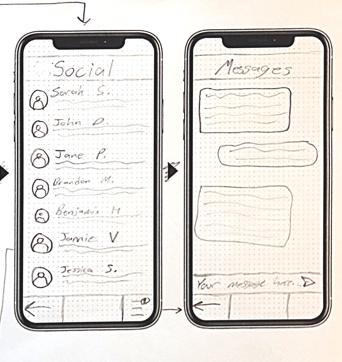 Social
Sarah S.
John D.
Jane P.
Brandon M.
Benjamin H
Jamie V
Jessica S.
Messages
Your message here...